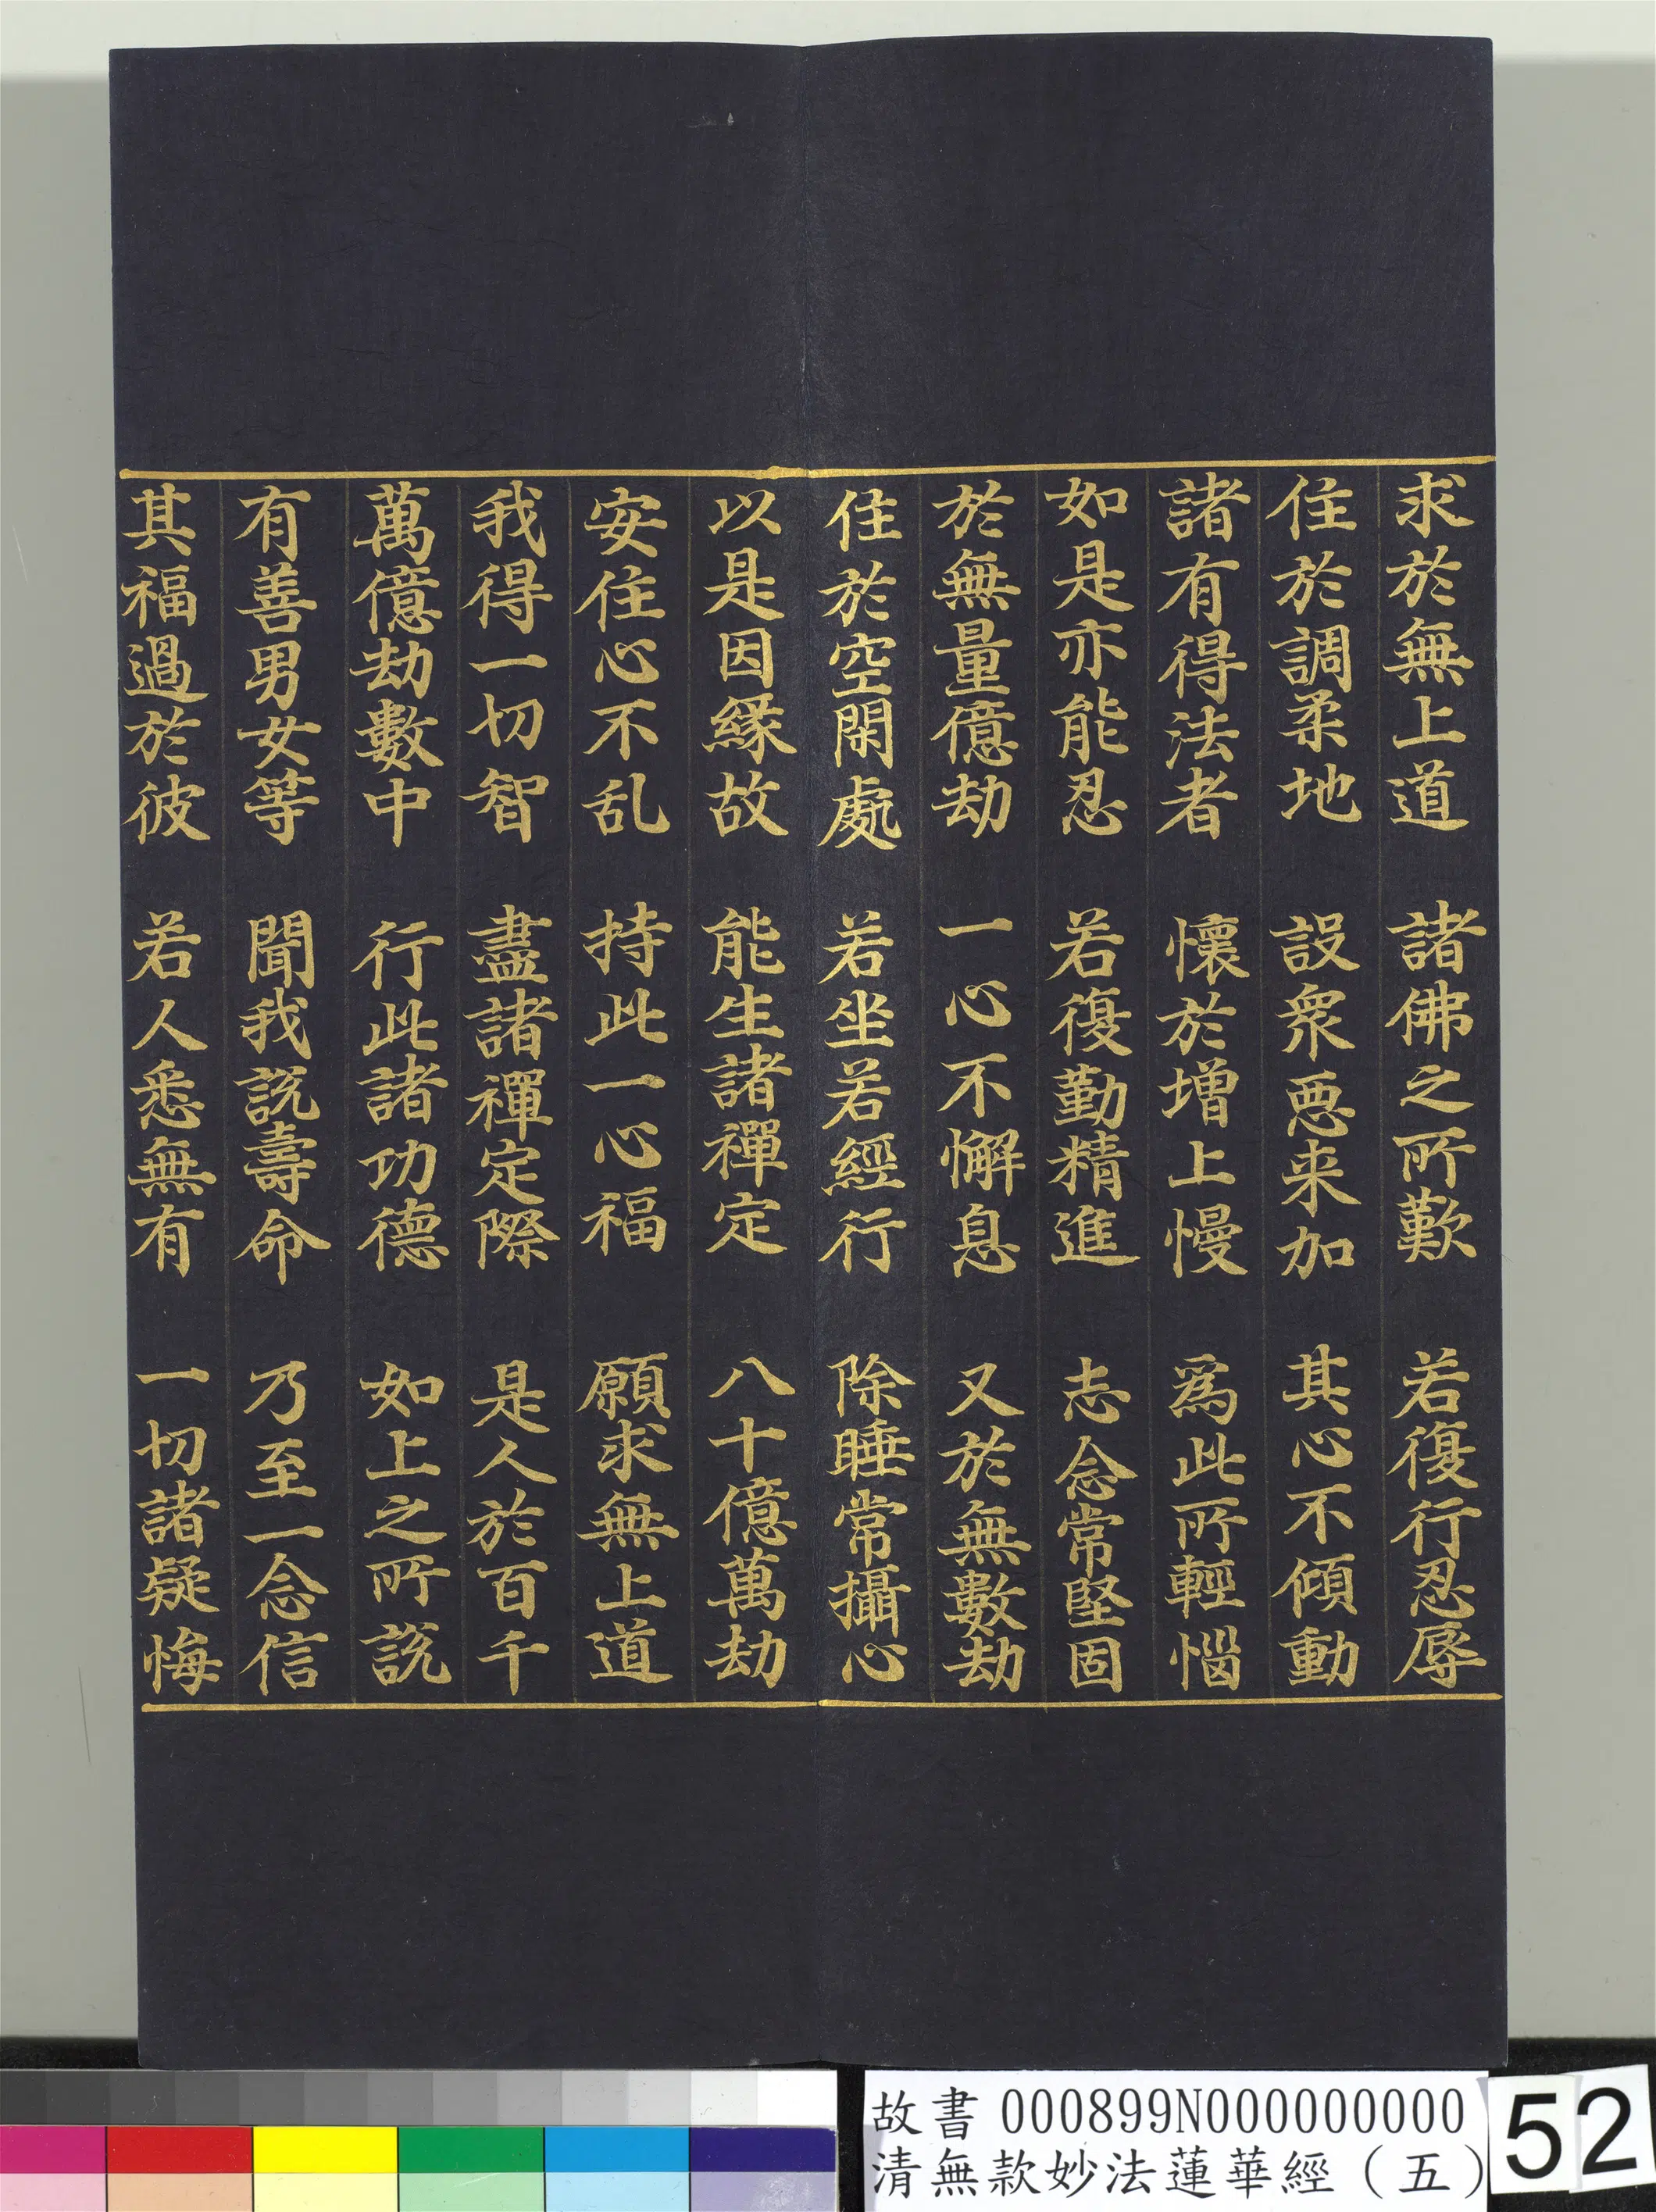 求於無上道　諸佛之所歎　若復行忍辱
住於調柔地　設衆惡来加　其心不傾動
諸有得法者　懷於增上慢　爲此所輕惱
如是亦能忍　若復勤精進　志念常堅固
於無量億劫　一心不懈息　又於無數劫
住於空閑處　若坐若經行　除睡常攝心
以是因緣故　能生諸禪定　八十億萬劫
安住心不乱　持此一心福　願求無上道
我得一切智　盡諸禪定際　是人於百千
萬億劫數中　行此諸功德　如上之所說
有善男女等　聞我說壽命　乃至一念信
其福過於彼　若人悉無有　一切諸疑悔
故書 000899N000000000
清無款妙法蓮華經（五）
52